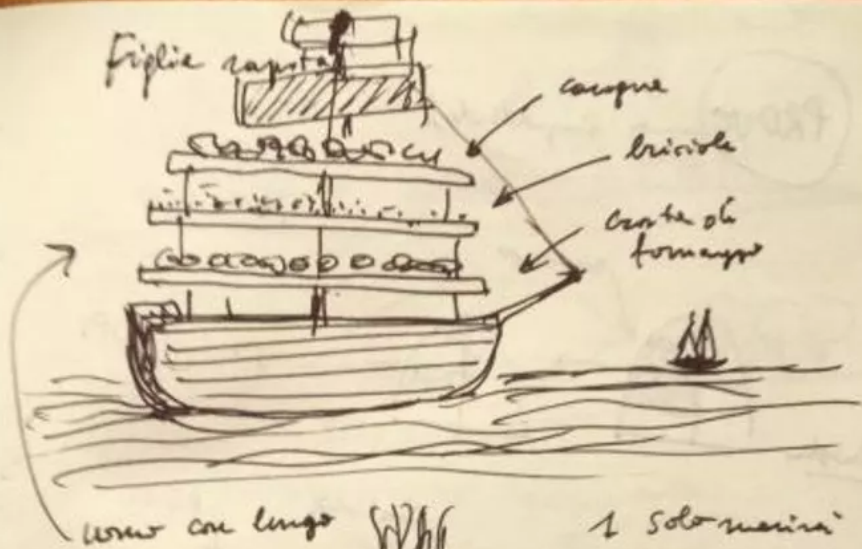 Figlia rapita
carogne
briciole
croste di
formaggio
uomo con lungo
1 solo